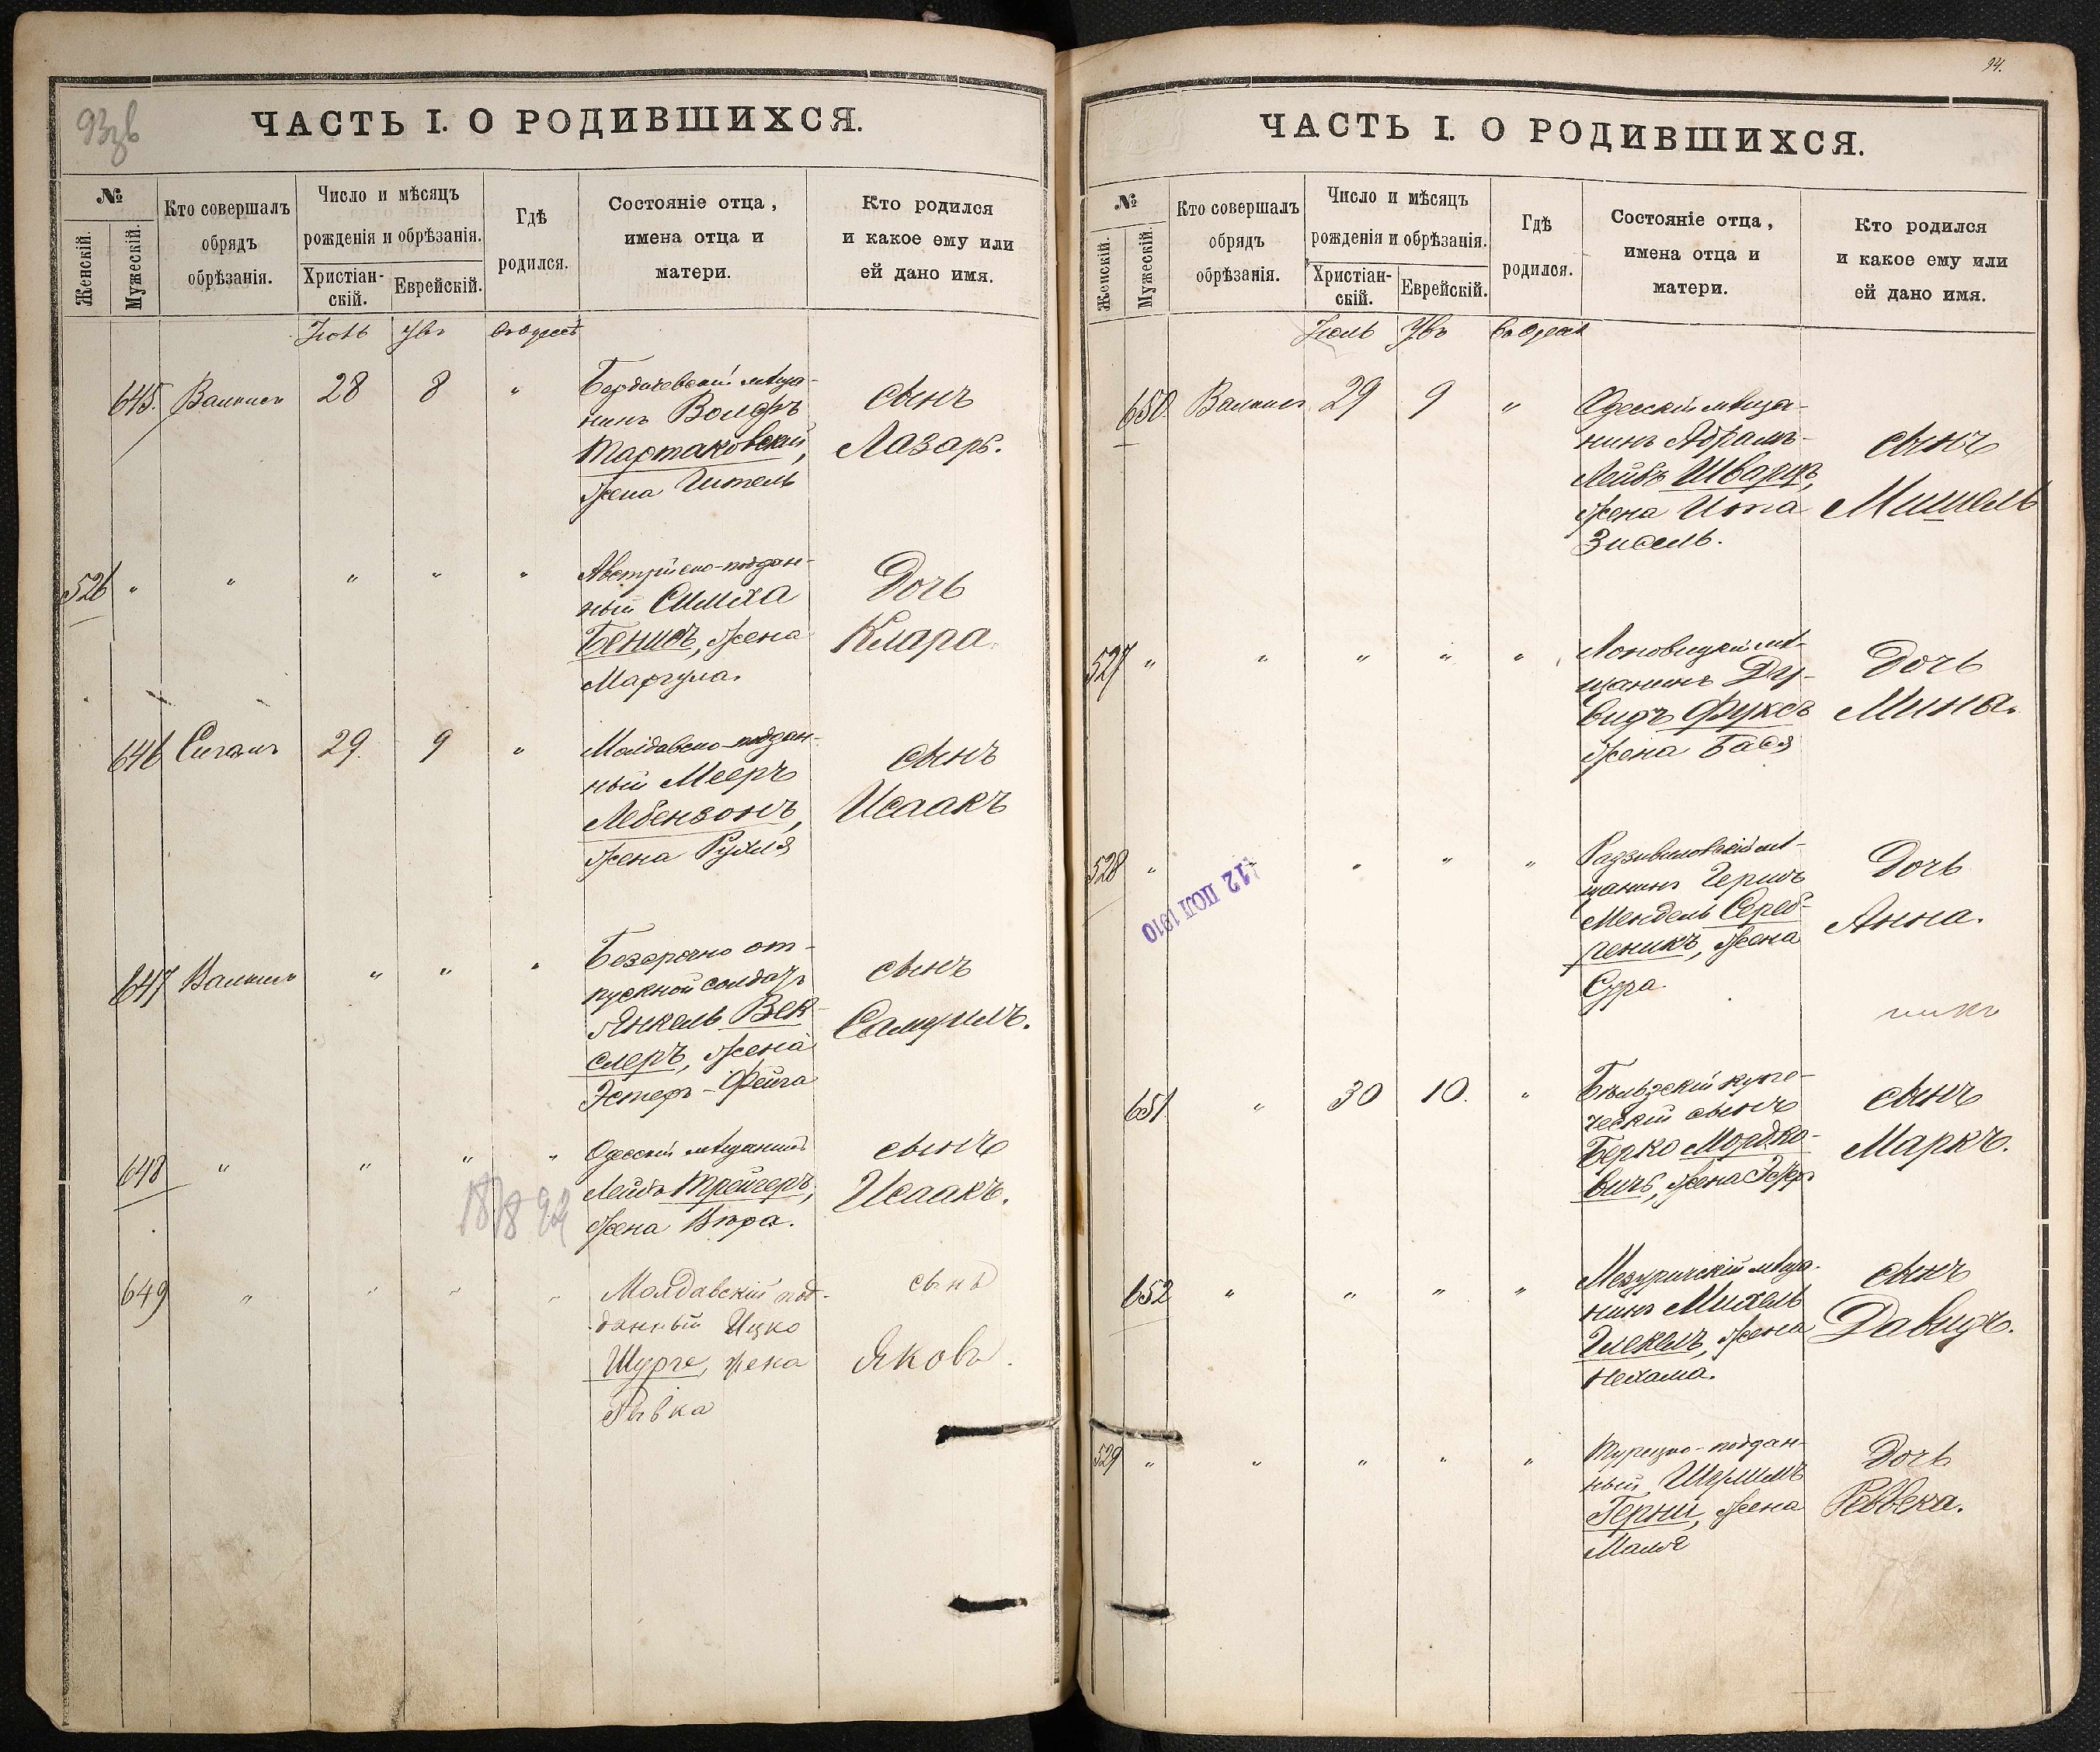 93 зв
ЧАСТЬ I. О РОДИВШИХСЯ.
№
Женскій.
Мужескій.
Кто совершалъ
обрядъ
обрѣзанія.
Число и мѣсяцъ
рожденія и обрѣзанія.
Христіан-
скій.
Еврейскій.
Гдѣ
родился.
Состояніе отца,
имена отца и
матери.
Кто родился
и какое ему или
ей дано имя.
Іюль
въ Одессѣ
645. 28 8 "
Бердичевскій мѣща-
нинъ Вольфъ
Тартаковскій,
жена Гитель
сынъ
Лазарь.
526 " " " " "
Австрійско-поддан-
ный Симха
Бенисъ, жена
Маргула.
Дочь
Клара.
646 29. 9 "
Молдавско-поддан-
ный Мееръ
Лебензонъ,
жена Рухля
сынъ
Исаакъ
647 " " "
Безсрочно от-
пускной солдатъ
Янкель Век-
слеръ, жена
Эстеръ-Фейга
сынъ
Самуилъ.
648 " " " "
Одесскій мѣщанинъ
Лейбъ Трейгеръ,
жена Вѣра.
сынъ
Исаакъ.
649 " " " "
Молдавскій под-
данный Ицко
жена
Ривка
сынъ
Яковъ.
94.
ЧАСТЬ I. О РОДИВШИХСЯ.
№
Женскій.
Мужескій.
Кто совершалъ
обрядъ
обрѣзанія.
Число и мѣсяцъ
рожденія и обрѣзанія.
Христіан-
скій.
Еврейскій.
Гдѣ
родился.
Состояніе отца,
имена отца и
матери.
Кто родился
и какое ему или
ей дано имя.
Іюль
въ Одессѣ
650. 29 9 "
Одесскій мѣща-
нинъ Абрамъ-
Лейбъ Шварцъ,
жена Ита
Зисель.
сынъ
Мишель
527 " " " " "
мѣ-
щанинъ Ду-
видъ Фуксъ
жена Бася
Дочь
Мина.
528 " " " "
Радзивиловскій мѣ-
щанинъ Гершъ
Мендель Сереб-
реникъ, жена
Сура.
Дочь
Анна.
никъ
12 ПОЛ 1910
651. " 30 10. "
Бѣльзскій купе-
ческій сынъ
Берко Мордко-
вичъ, жена
сынъ
Маркъ.
652 " " " "
Мезуричскій мѣща-
нинъ Михель
жена
Нехама.
сынъ
Давидъ.
529 " " " " "
Турецко-поддан-
ный
жена
Дочь
Ревекка.